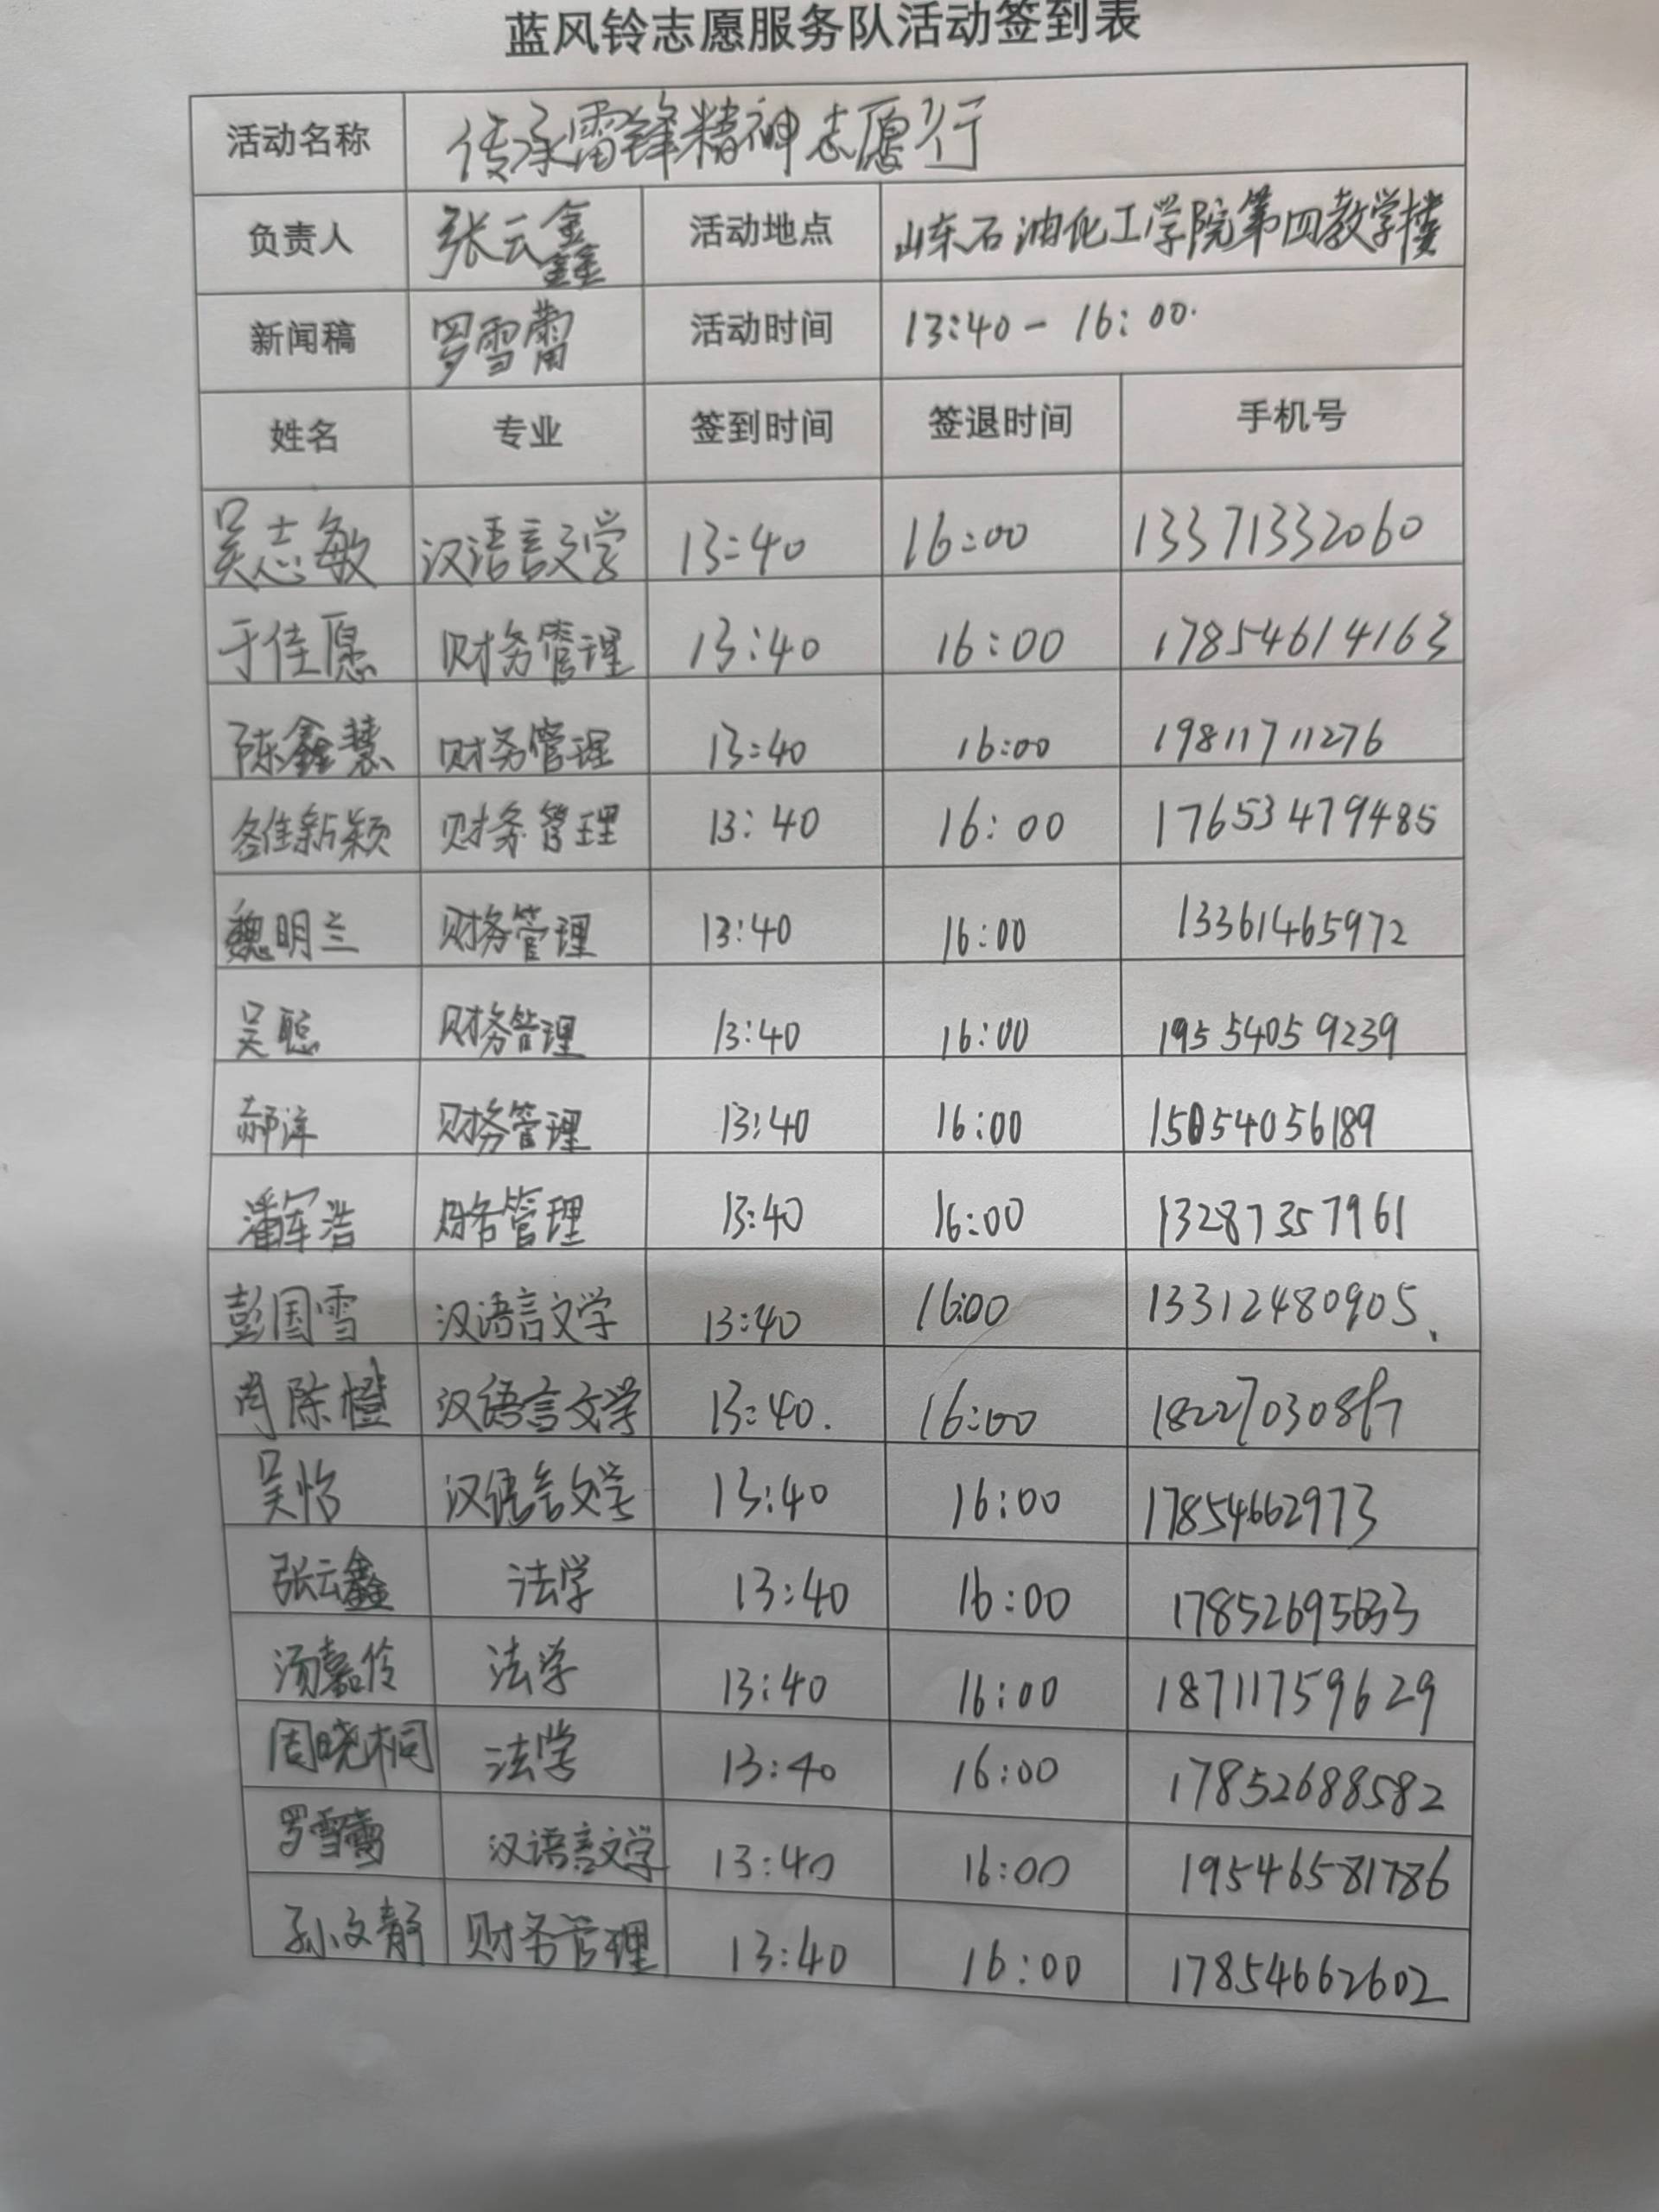 蓝风铃志愿服务队活动签到表
活动名称 传承雷锋精神志愿行
负责人 张云鑫 活动地点 山东石油化工学院第四教学楼
新闻稿 罗雪蕾 活动时间 13:40-16:00.
姓名 专业 签到时间 签退时间 手机号
吴志敏 汉语言文学 13:40 16:00 13371332060
于佳愿 财务管理 13:40 16:00 17854614163
陈鑫慧 财务管理 13:40 16:00 19811711276
新颖 财务管理 13:40 16:00 17653479485
魏明兰 财务管理 13:40 16:00 13361465972
吴聪 财务管理 13:40 16:00 19554059239
郝洋 财务管理 13:40 16:00 15054056189
潘军浩 财务管理 13:40 16:00 13287357961
彭国雪 汉语言文学 13:40 16:00 13312480905.
肖陈橙 汉语言文学 13:40. 16:00
吴怡 汉语言文学 13:40 16:00 17854662973
张云鑫 法学 13:40 16:00 17852695633
汤嘉伶 法学 13:40 16:00 18711759629
周晓桐 法学 13:40 16:00 17852688582
罗雪蕾 汉语言文学 13:40 16:00 19546581786
孙文静 财务管理 13:40 16:00 17854662602